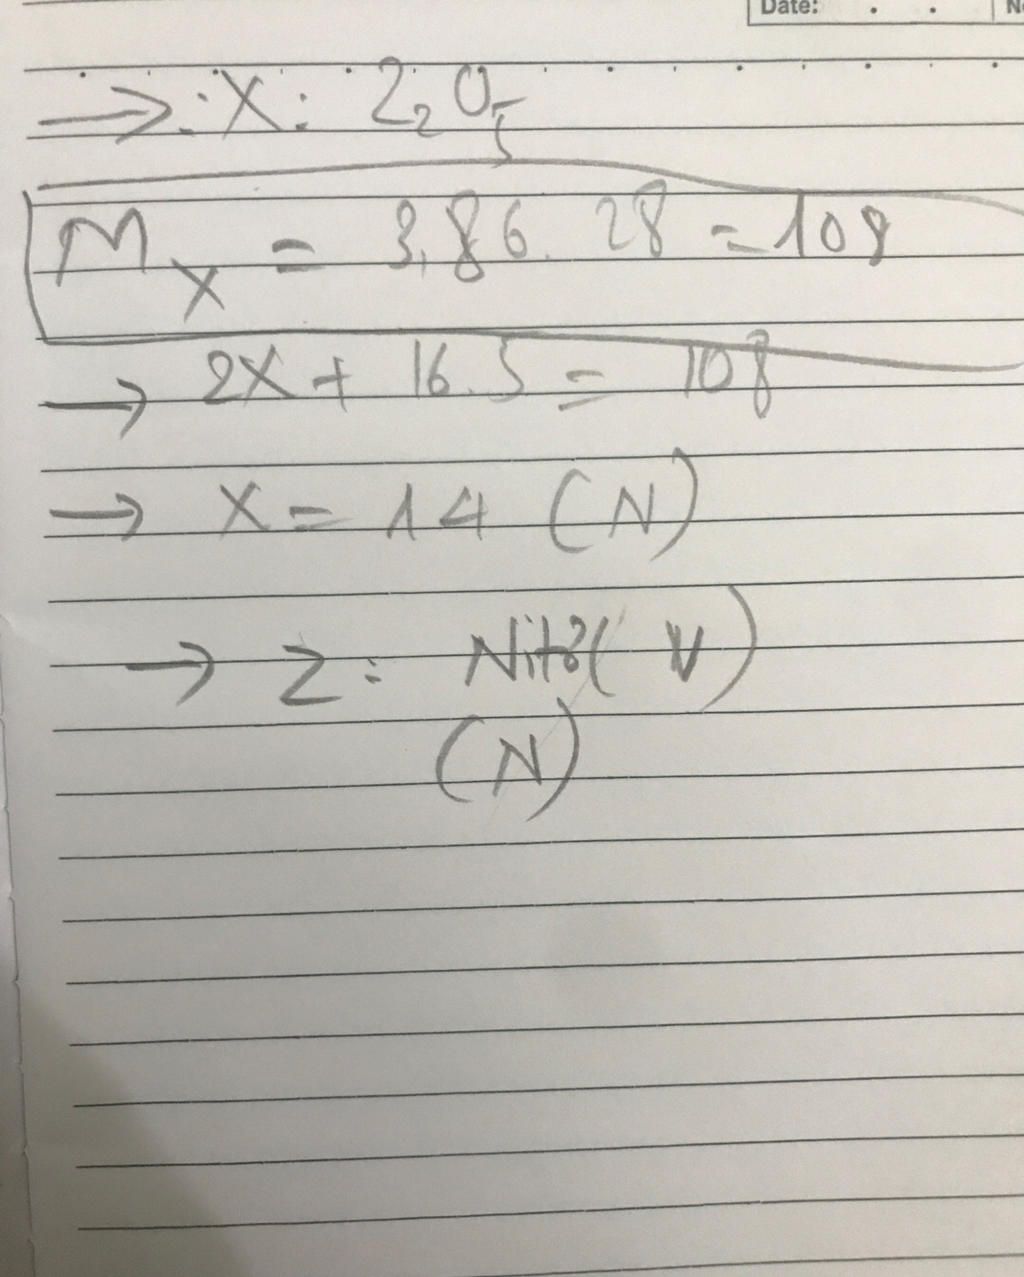 Date: . .
⟹ : X : Z₂O₅
M_X = 3,86. 28 = 108
→ 2X + 16.5 = 108
→ X = 14 (N)
→ Z : Nitơ (V)
(N)